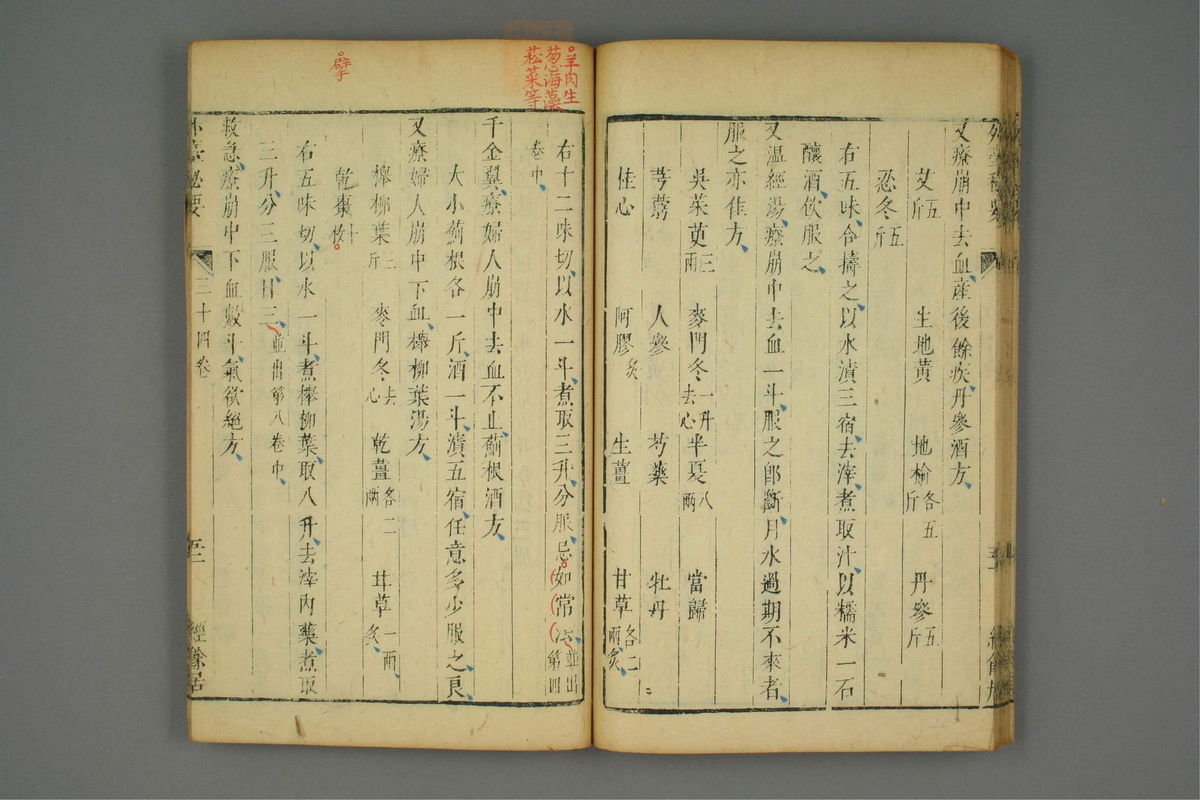 又療崩中去血產後餘疾丹參酒方
艾五斤 生地黃 地榆各五斤 丹參五斤
忍冬五斤
右五味合擣之以水漬三宿去滓煮取汁以糯米一石
釀酒飲服之
又溫經湯療崩中去血一斗服之卽斷月水過期不來者
服之亦隹方
吳茱萸三兩 麥門冬一升去心 半夏八兩 當歸
芎藭 人參 芍藥 牡丹
桂心 阿膠炙 生薑 甘草各二兩炙
羊肉生
葱海藻
菘菜等
右十二味切以水一斗煮取三升分服忌如常法並出第四
卷中
千金翼療婦人崩中去血不止薊根酒方
大小薊根各一斤酒一斗漬五宿任意多少服之良
又療婦人崩中下血櫸柳葉湯方
櫸柳葉三斤 麥門冬去心 乾薑各二兩 甘草一兩炙
擘
乾棗十枚
右五味切以水一斗煮櫸柳葉取八升去滓內藥煮取
三升分三服日三並出第八卷中
救急療崩中下血數斗氣欲絕方
外臺秘要 三十四卷 五十二 經餘居